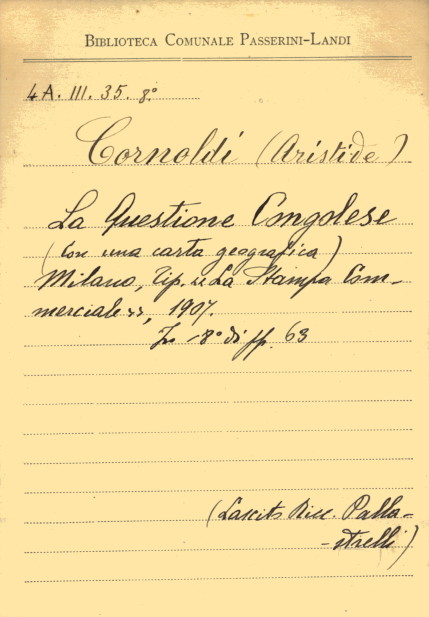 BIBLIOTECA COMUNALE PASSERINI-LANDI
4A. III. 35. 8º
Cornoldi (Aristide)
La Questione Congolese
(con una carta geografica)
Milano, Tip. "La Stampa Com-
merciale", 1907.
In-8º di pp. 63
(Lascito Palla-
-strelli)